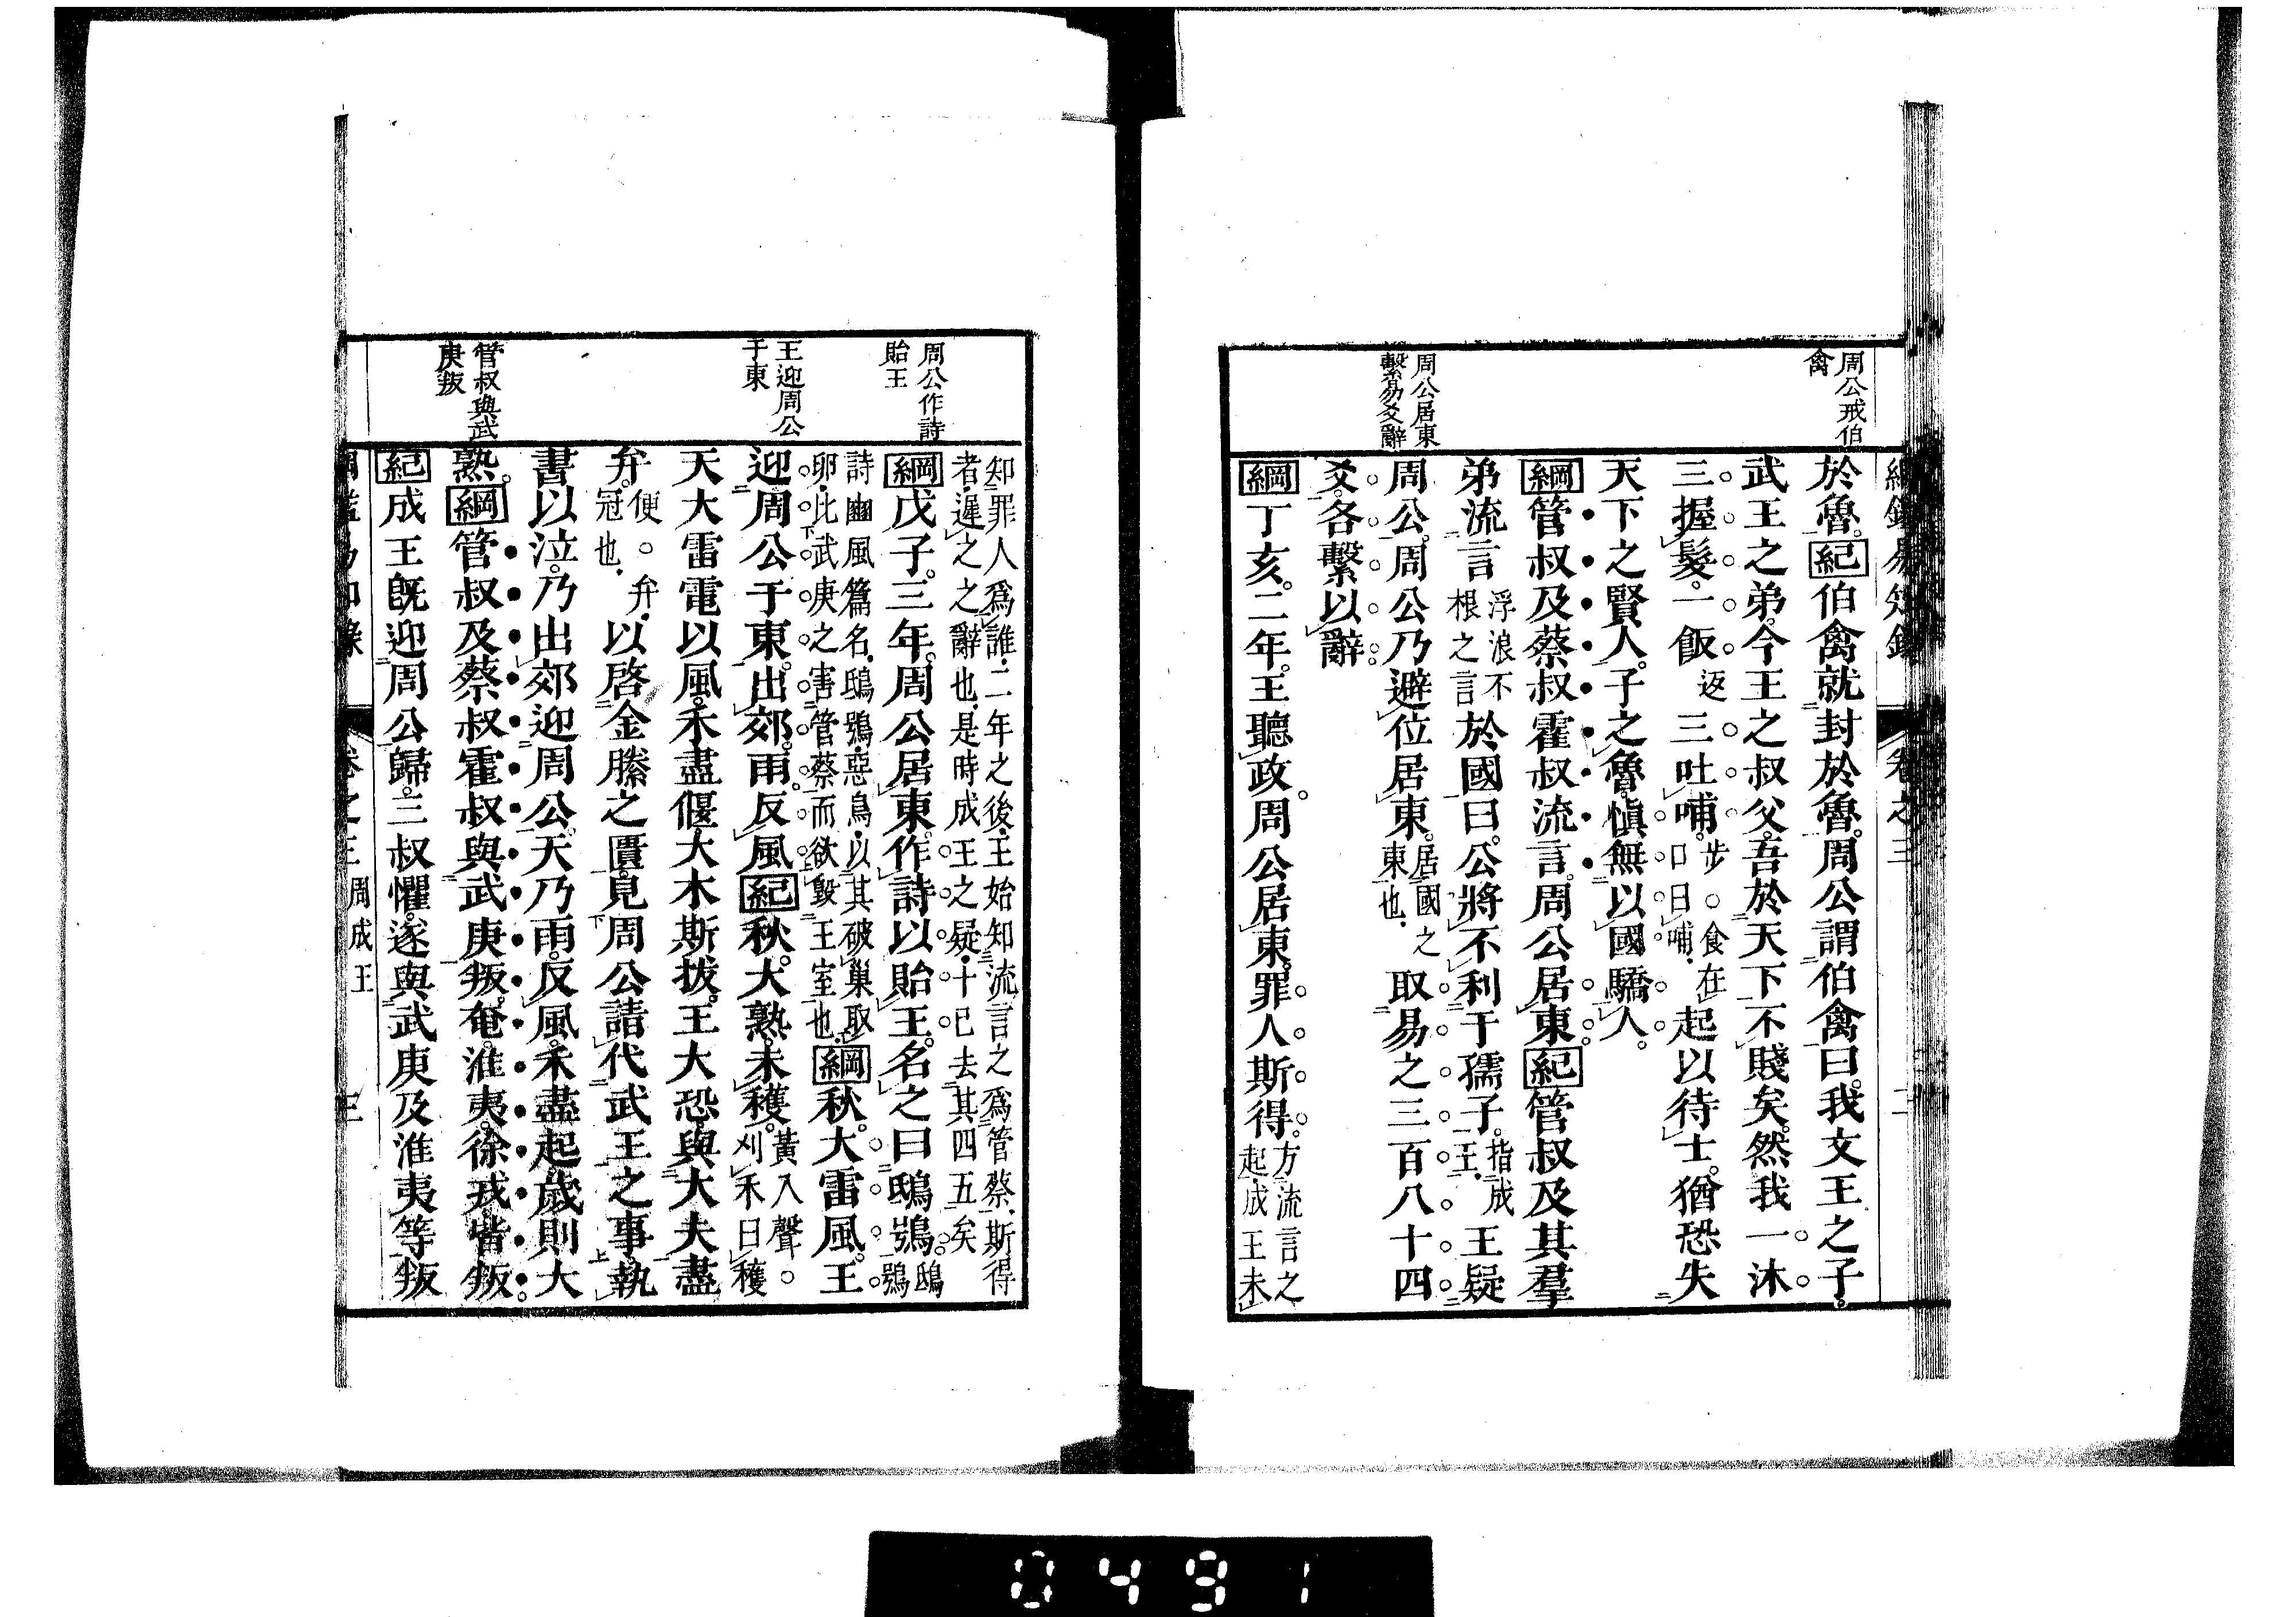 周公戒伯
禽
周公居東
繫易爻辭
於魯。紀伯禽就封於魯。周公謂伯禽曰。我文王之子。
武王之弟。今王之叔父。吾於天下不賤矣。然我一沐
三握髮。一飯返三吐哺。步。食在口曰哺。起以待士。猶恐失
天下之賢人。子之魯。愼無以國驕人。
綱管叔及蔡叔霍叔流言。周公居東。紀管叔及其羣
弟流言浮浪不根之言於國曰。公將不利于孺子。指成王。王疑
周公。周公乃避位居東。居國之東也。取易之三百八十四
爻。各繫以辭。
綱丁亥。二年。王聽政。周公居東。罪人斯得。方流言之起。成王未
周公作詩
貽王
王迎周公
于東
管叔與武
庚叛
知罪人爲誰。二年之後。王始知流言之爲管蔡。斯得
者。遲之之辭也。是時成王之疑。十已去其四五矣
綱戊子。三年。周公居東。作詩以貽王。名之曰鴟鴞。鴟鴞
詩豳風篇名。鴟鴞。惡鳥。以其破巢取
卵。比武庚之害管蔡而欲毀王室也。綱秋。大雷風。王
迎周公于東。出郊。雨。反風。紀秋。大熟。未穫。黃入聲。刈禾曰穫
天大雷電以風。禾盡偃。大木斯拔。王大恐。與大夫盡
弁。便。弁。冠也。以啓金縢之匱。見周公請代武王之事。執
書以泣。乃出郊迎周公。天乃雨。反風。禾盡起。歲則大
熟。綱管叔及蔡叔霍叔與武庚叛。奄。淮夷。徐戎。皆叛。
紀成王旣迎周公歸。三叔懼。遂與武庚及淮夷等叛
卷之三 周成王 三